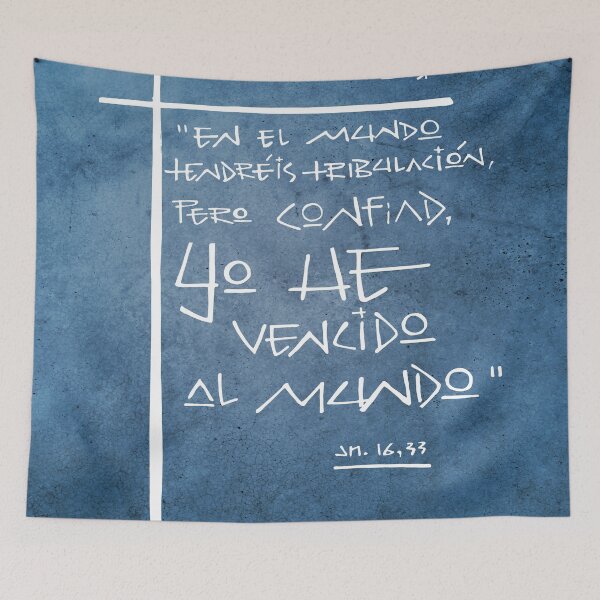 "EN EL MUNDO
TENDRÉIS TRIBULACIÓN,
PERO CONFIAD,
YO HE
VENCIDO
AL MUNDO"
JN. 16,33